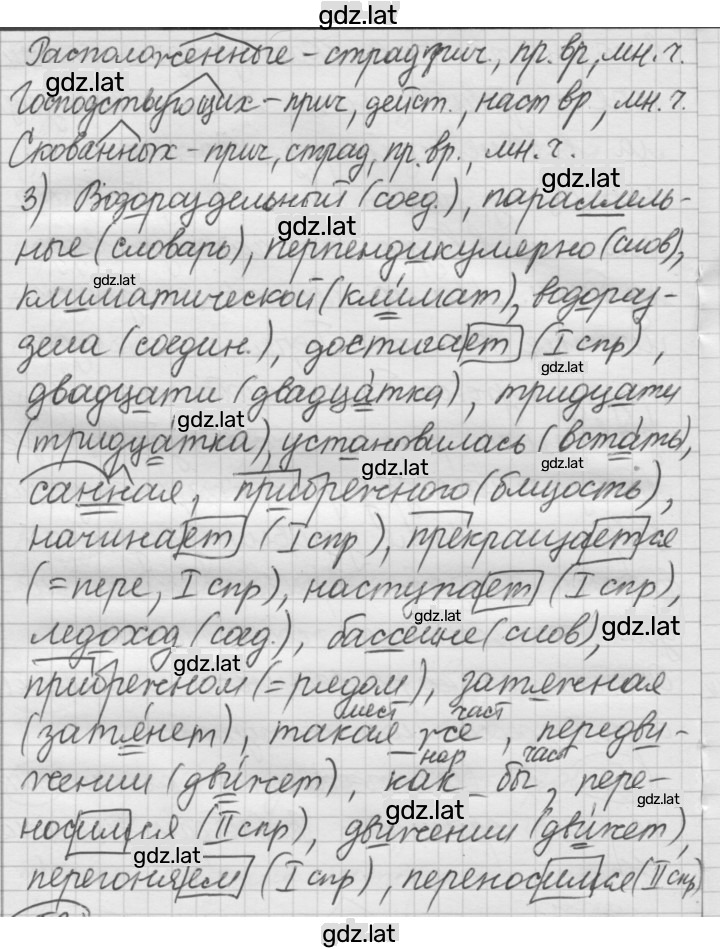 gdz.lat
Расположенные – страд прич, пр. вр, мн. ч.
gdz.lat
Господствующих – прич, дейст., наст вр., мн. ч.
Скованных – прич, страд, пр. вр., мн. ч.
gdz.lat
3) Водораздельный (соед.), параллель-
gdz.lat
ные (словарь), перпендикулярно (слов),
gdz.lat
климатической (климат), водораз-
дела (соедин.), достигает (I спр),
gdz.lat
двадцати (двадцатка), тридцати
gdz.lat
(тридцатка), установилась (встать),
gdz.lat gdz.lat
санная, прибрежного (близость),
начинает (I спр), прекращается
(=пере, I спр), наступает (I спр),
gdz.lat gdz.lat
ледоход (соед.), бассейне (слов),
gdz.lat
прибрежном (=рядом), затяжная
мест част
(затянет), такая же, передви-
нар част
жении (движет), как бы, пере-
gdz.lat gdz.lat
носимся (II спр), движении (движет),
gdz.lat
перегоняем (I спр), переносимся (II спр)
gdz.lat